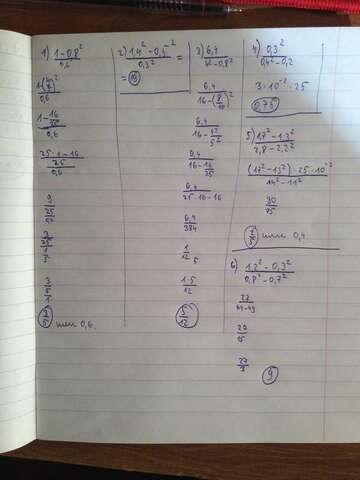 1) 1-0,8²
0,6
0,6
1-16
25
0,6
25·1-16
25
0,6
9
25
3
5
3
5 или 0,6.
2) 1,4² - 0,5²
0,3²
= 19
3) 6,4
4²-0,8²
6,4
16-(8/10)²
6,4
6,4
16-16
25
6,4
25·16-16
6,4
384
1
12
1·5
12
5
12
4) 0,3²
0,4²-0,2
3·10⁻²·25
0,75
5) 1,7²-1,3²
2,8-2,2²
(17²-13²)·25·10⁻²
14²-11²
30
75
или 0,4
6) 1,2²-0,3²
0,8²-0,7²
27
64-49
15
27
3
9